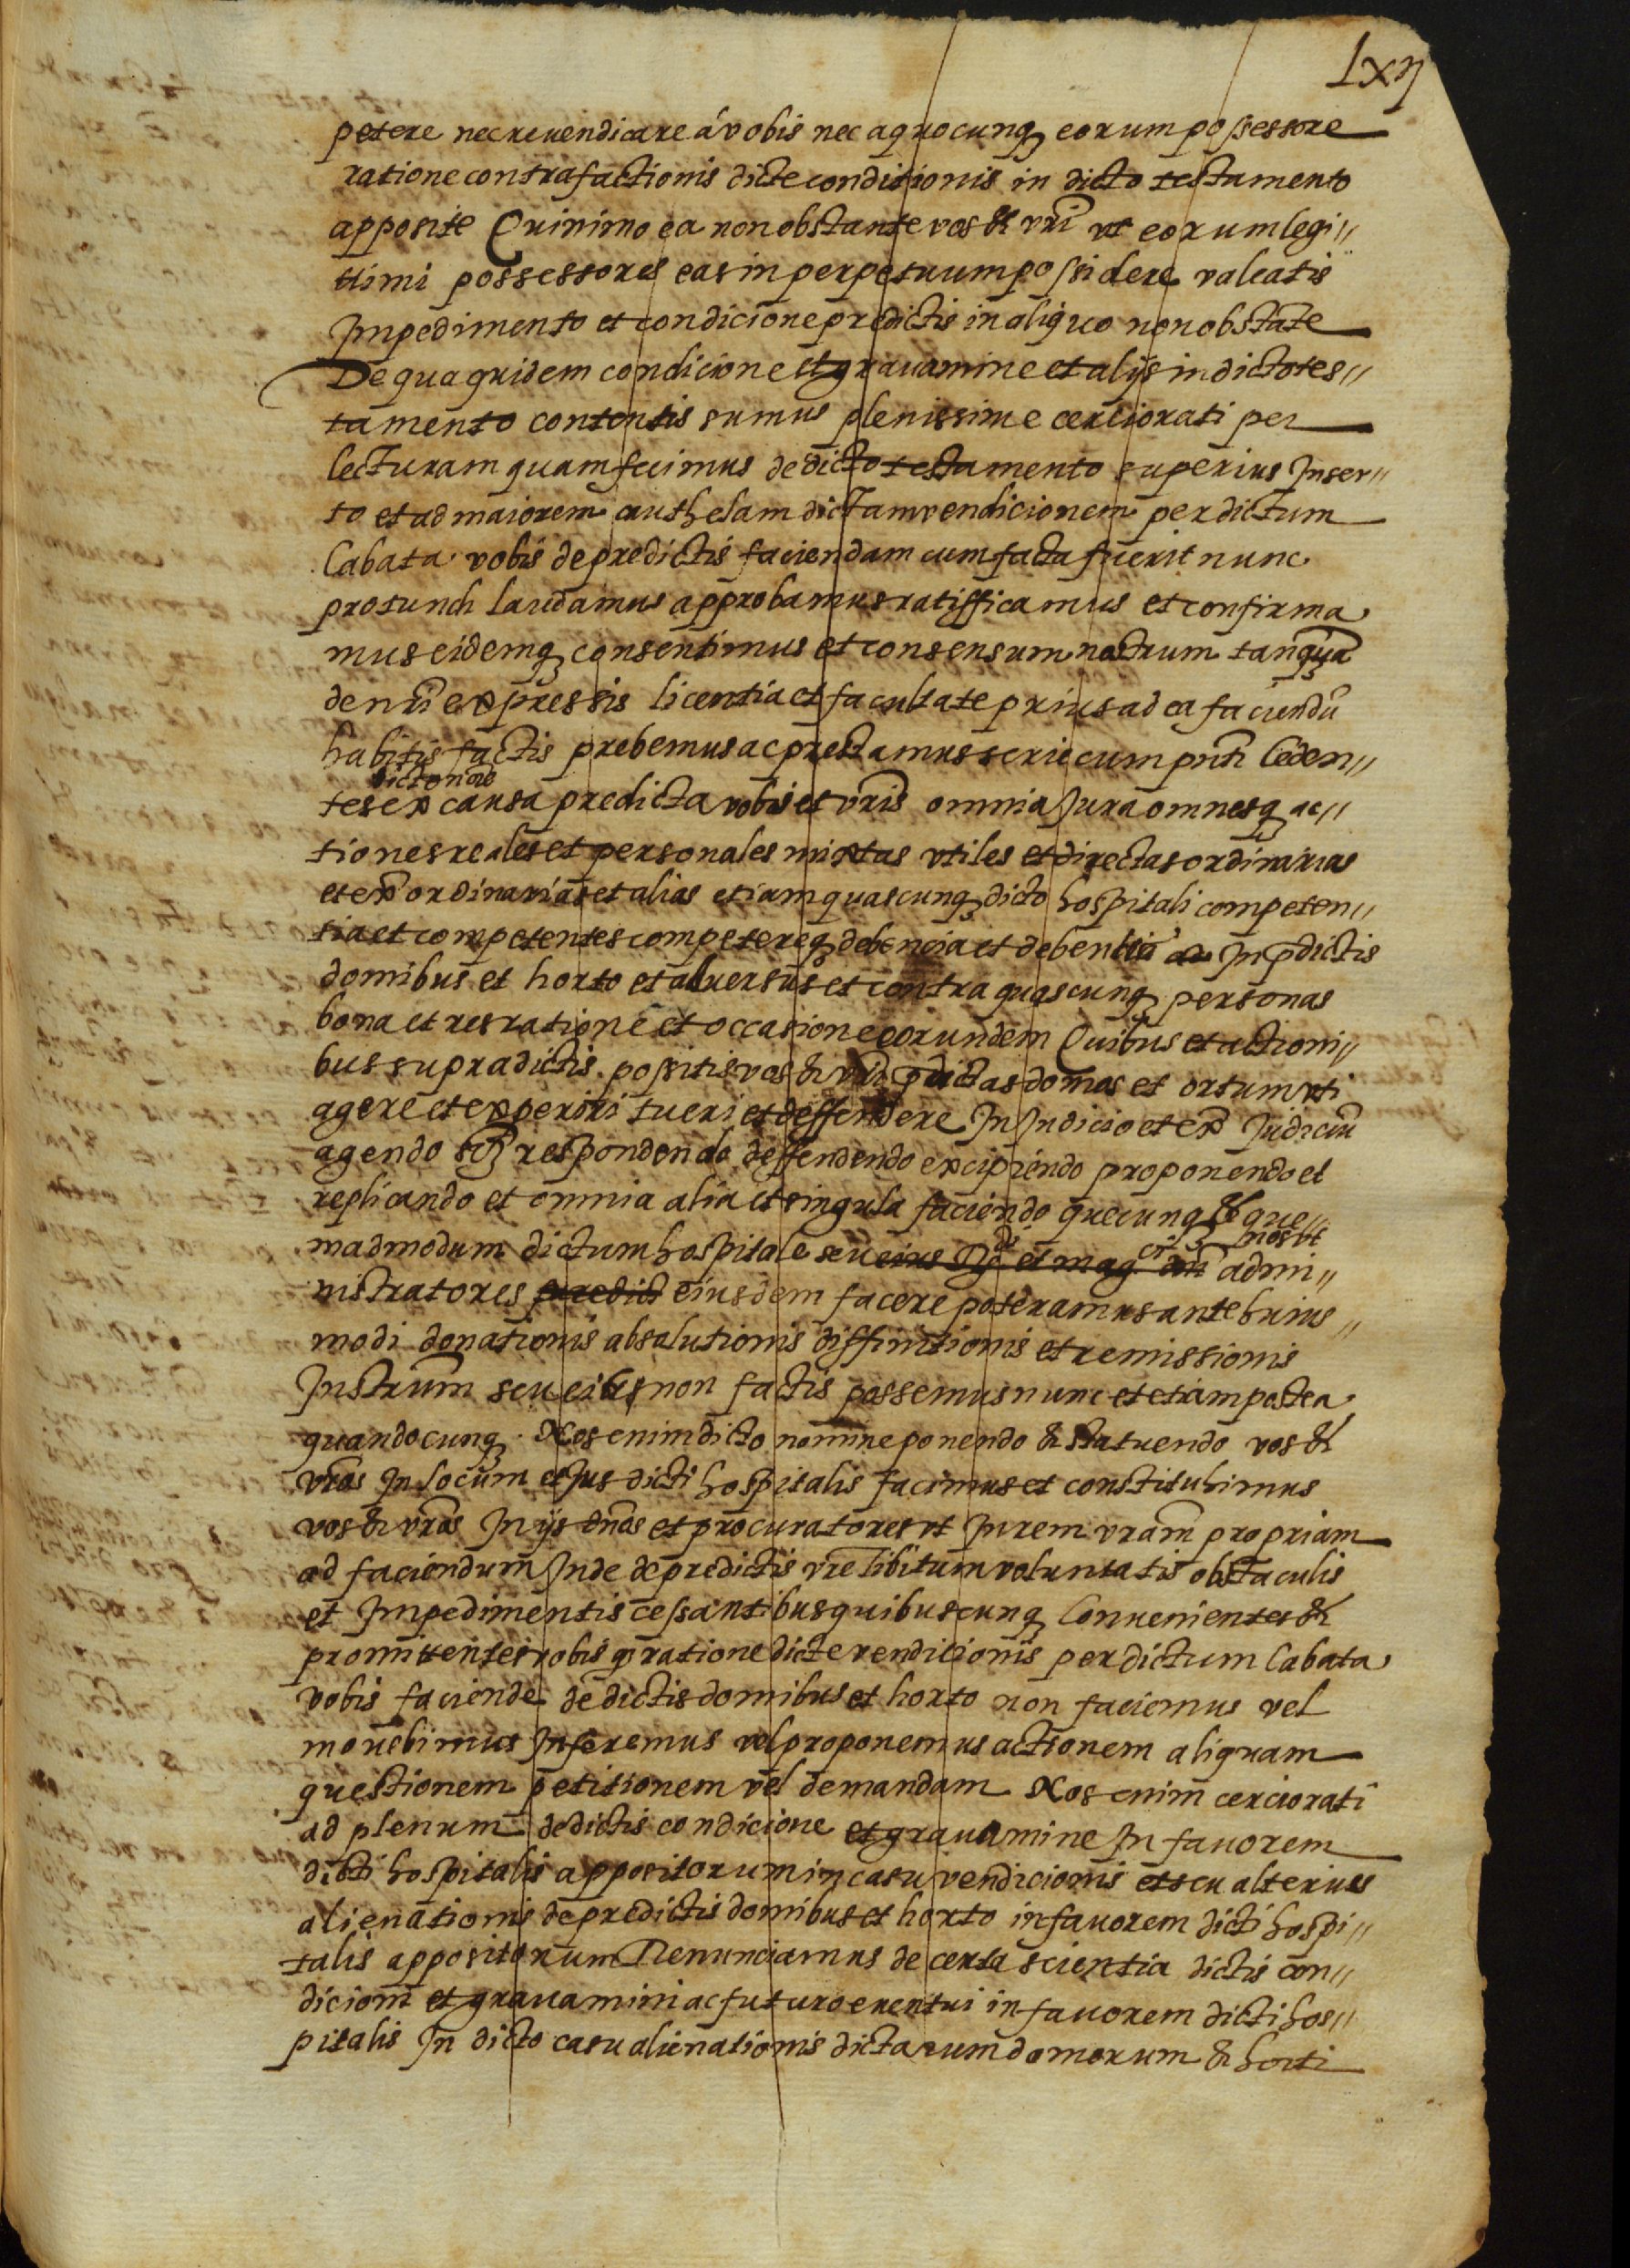 lxij
petere nec reuendicare á vobis nec a quocunq eorum possessore
ratione contrafactionis dicte conditionis in dicto testamento
apposite Quinimo ea non obstante vos & vri vt eorum legi//
ttimi possessores eas in perpetuum possidere valeatis
Impedimento et condicione predictis in aliquo non obstāte
De qua quidem condicione et grauamine et alijs in dicto tes//
tamento contentis sumus plenissime cerciorati per
lecturam quam fecimus de dicto testamento superius Inser//
to et ad maiorem cauthelam dictam vendicionem per dictum
Cabata vobis de predictis faciendam cum facta fuerit nunc
pro tunch laudamus approbamus ratifficamus et confirma
mus eidemq consentimus et consensum nostrum tanquā
de nri expressis licentia et facultate prius ad ea faciendū
habitis factis prebemus ac prestamus serie cum pnti Ceden//
dicto noīe
tes ex causa predicta vobis et vris omnia Jura omnesq ac//
tiones reales et personales mixtas vtiles et directas ordinarias
et exordinarias et alias etiam quascunq dicto hospitali competen//
tia et competentes competereq debencia et debentia In pdictis
domibus et horto et aduersus et contra quascunq personas
bona et res ratione et occasione eorundem Quibus et actioni//
bus supradictis positis vos & vri pdictas domos et ortum vti
agere et experiri tueri et deffendere In Judicio et ex Judiciū
agendo respondendo deffendendo excipiendo proponendo et
replicando et omnia alia et singula faciendo quecunq & que//
nos vt
madmodum dictum hospitale seu eius et mag admi//
nistratores predict eiusdem facere poteramus ante huius//
modi donationis absolutionis diffinitionis et remissionis
Instrum seu eis non factis possemus nunc et etiam postea
quandocunq. Nos enim dicto nomine ponendo & statuendo vos &
vros In locum et Jus dicti hospitalis facimus et constituhimus
vos & vros In ijs dnos et procuratores vt In rem vram propriam
ad faciendum Inde de predictis vre libitum voluntatis obstaculis
et Impedimentis cessantibus quibuscunq Conuenientes &
promittentes vobis q ratione dicte vendicionis per dictum Cabata
vobis faciende de dictis domibus et horto non faciemus vel
mouebimus Inferemus vel proponemus actionem aliquam
questionem petitionem vel demandam Nos enim cerciorati
ad plenum de dictis condicione et grauamine In fauorem
dicti hospitalis appositorum in casu vendicionis et seu alterius
alienationis de predictis domibus et horto in fauorem dicti hospi//
talis appositorum Renunciamus de certa scientia dictis con//
dicioni et grauamini ac futuro euentui in fauorem dicti hos//
pitalis In dicto casu alienationis dictarum domorum & horti